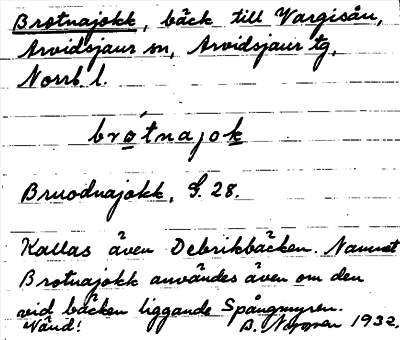 Brotnajokk, bäck till Vargisån,
Arvidsjaur sn, Arvidsjaur tg,
Norrb. l.
brótnajok
Bruodnajokk, G. 28.
Kallas även Debrikbäcken. Namnet
Brotnajokk användes även om den
vid bäcken liggande Spångmyren.
Vänd! B. 1932.